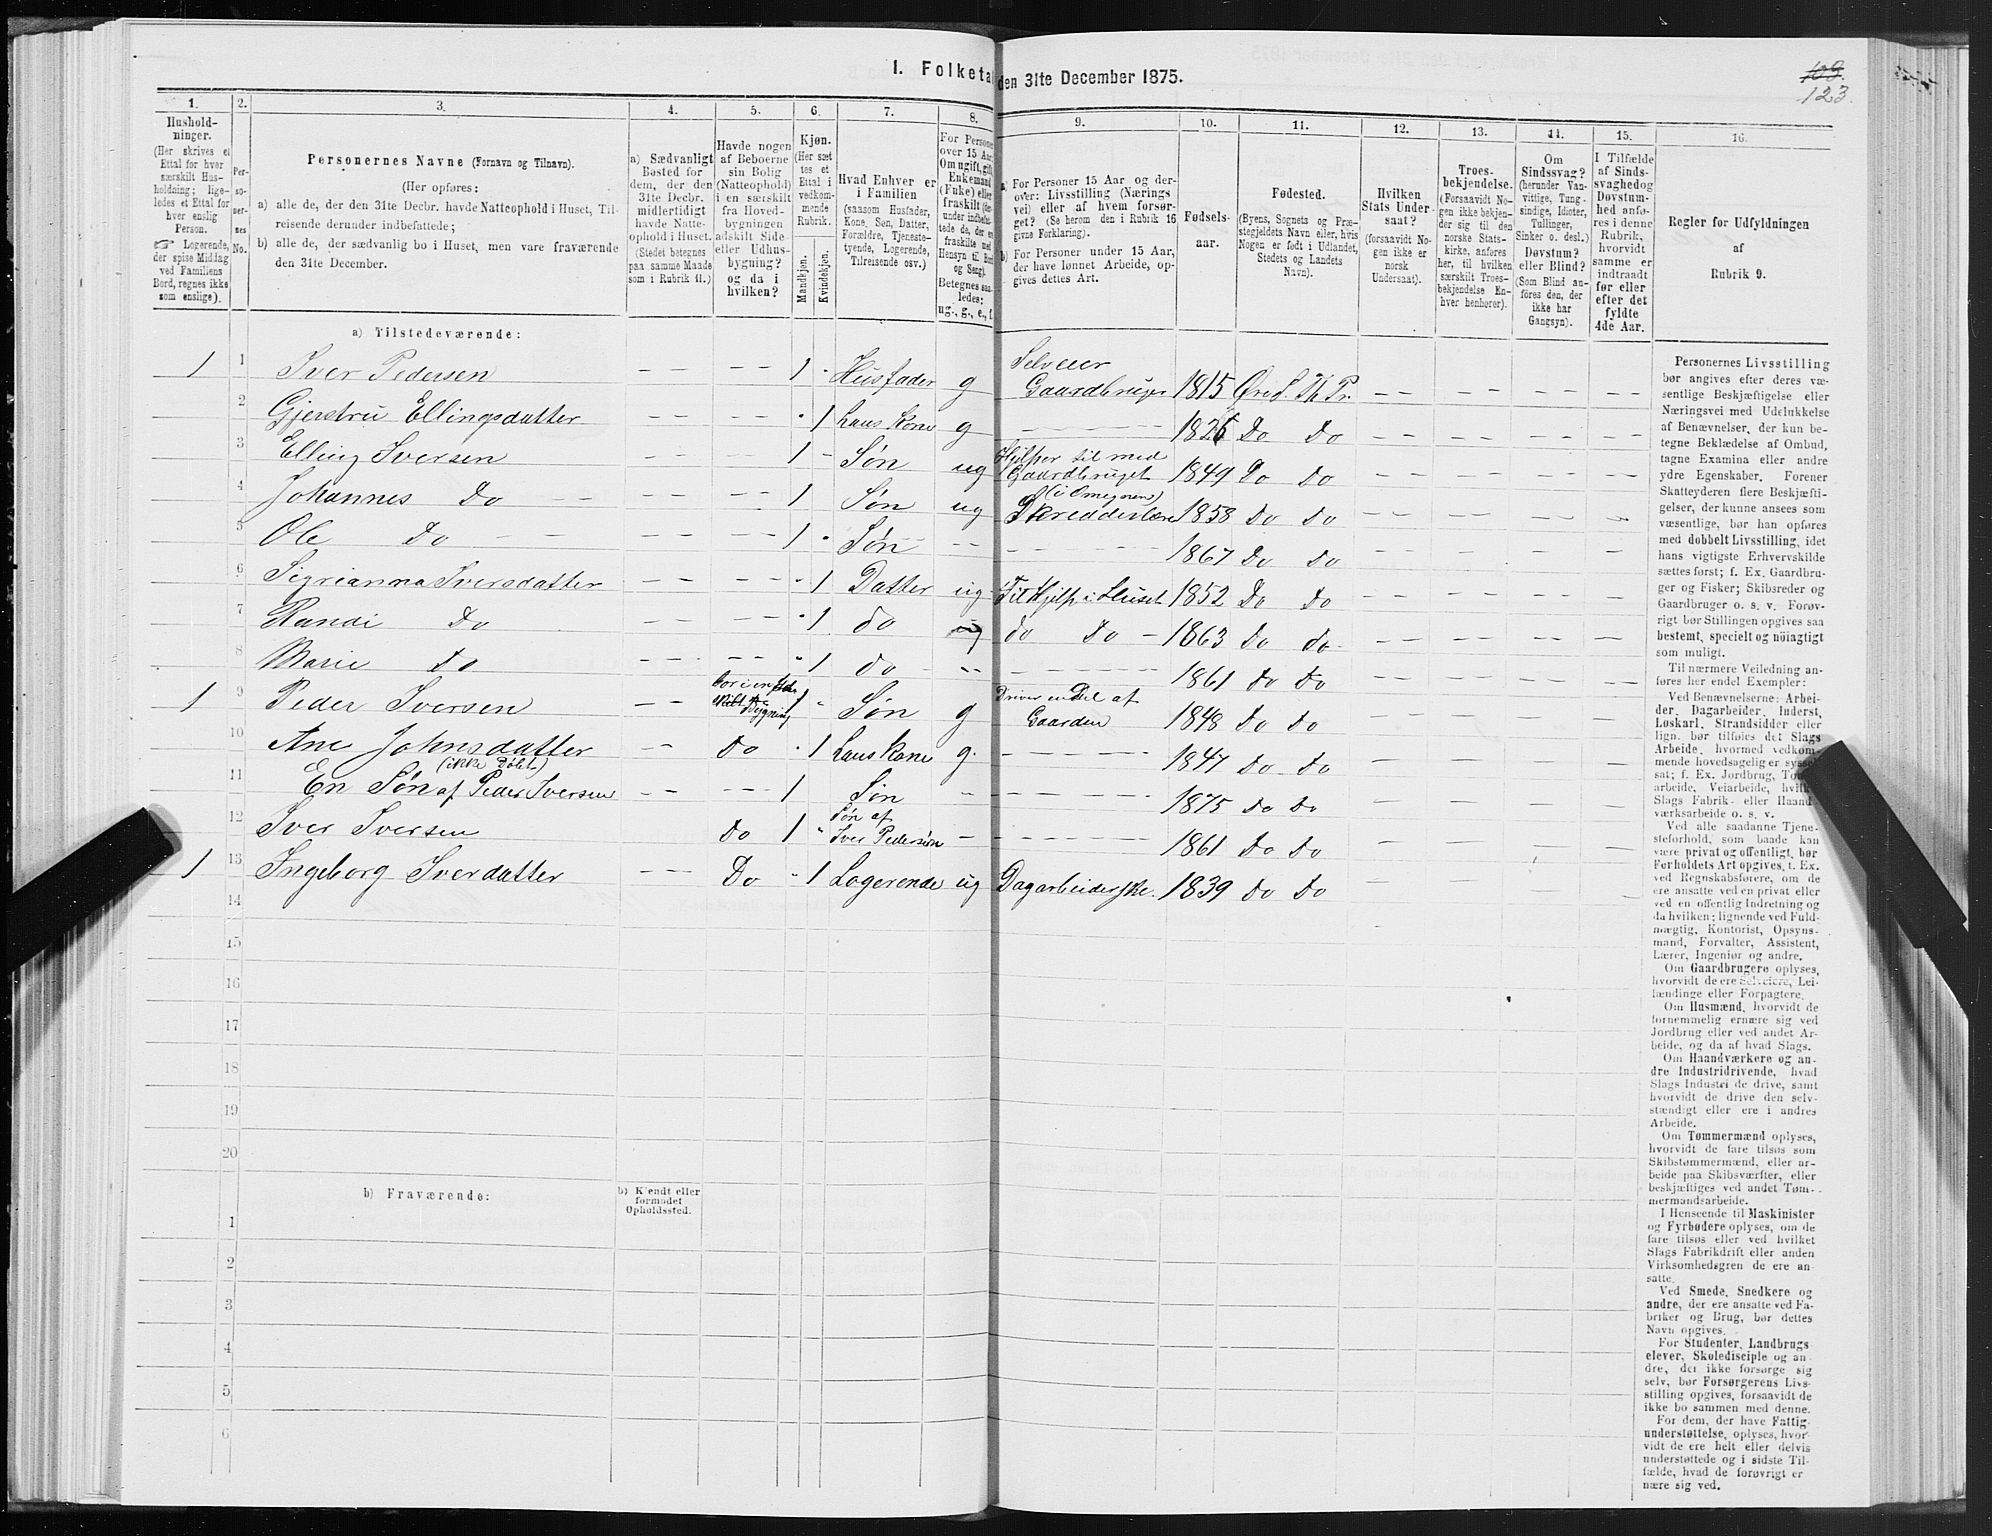 1. Folketa den 31te December 1875.
103.
123.
1. 2. 3. 4. 5. 6. 7. 8. 9. 10. 11. 12. 13. 14. 15. 16.
Hushold-
ninger.
(Her skrives et
Ettal for hver
særskilt Hus-
holdning; lige-
ledes et Ettal for
hver enslig
Person.
☞ Logerende,
der spise Middag
ved Familiens
Bord, regnes ikke
som enslige).
Per-
so-
ner-
nes
No.
Personernes Navne (Fornavn og Tilnavn).
(Her opføres:
a) alle de, der den 31te Decbr. havde Natteophold i Huset, Til-
reisende derunder indbefattede;
b) alle de, der sædvanlig bo i Huset, men vare fraværende
den 31te December.
a) Sædvanligt
Bosted for
dem, der den
31te Decbr.
midlertidigt
havde Natte-
ophold i Huset.
(Stedet betegnes
paa samme Maade
som i Rubrik 11.)
Havde nogen
af Beboerne
sin Bolig
(Natteophold)
i en særskilt
fra Hoved-
bygningen
adskilt Side-
eller Udhus-
bygning?
og da i
hvilken?
Kjøn.
(Her sæt-
tes et
Ettal i
vedkom-
mende
Rubrik.
Mandkjøn.
Kvindekjøn.
Hvad Enhver er
i Familien
(saasom Husfader,
Kone, Søn, Datter,
Forældre, Tjeneste-
tyende, Logerende,
Tilreisende osv.)
For Personer
over 15 Aar:
Om ugift, gift,
Enkemand
(Enke) eller
fraskilt (der-
under indbefat-
tede de, der ere
fraskilte med
Hensyn til Bord
og Seng).
Betegnes saa-
ledes:
ug., g., e., f.
a) For Personer 15 Aar og der-
over: Livsstilling (Nærings-
vei) eller af hvem forsør-
get? (Se herom den i Rubrik 16
givne Forklaring).
b) For Personer under 15 Aar,
der have lønnet Arbeide, op-
gives dettes Art.
Fødsels-
aar.
Fødested.
(Byens, Sognets og Præ-
stegjeldets Navn eller, hvis
Nogen er født i Udlandet,
Stedets og Landets
Navn).
Hvilken
Stats Under-
saat?
(forsaavidt No-
gen ikke er
norsk
Undersaat).
Troes-
bekjendelse.
(Forsaavidt No-
gen ikke bekjen-
der sig til den
norske Stats-
kirke, anføres
her, til hvilken
særskilt Troes-
bekjendelse En-
hver henhører).
Om
Sindssvag?
(herunder Van-
vittige, Tung-
sindige, Idioter,
Tullinger,
Sinker o. desl.)
Døvstum?
eller Blind?
(Som Blind an-
føres den, der
ikke har
Gangsyn).
I Tilfælde
af Sinds-
svaghed og
Døvstum-
hed anfø-
res i denne
Rubrik,
hvorvidt
samme er
indtraadt
før eller
efter det
fyldte
4de Aar.
Regler for Udfyldningen
af
Rubrik 9.
a) Tilstedeværende:
1 1 Iver Pedersen — — — — 1 Husfader g Selveier Gaardbruger 1815 Øre S. Th Pr. — —
2 Gjerstru Ellingsdatter — — — — 1 hans Kone g — 1826 Do Do — —
3 Elling Iversen — — — — 1 Søn ug Hjelper til med Gaardbruget 1849 Do Do — —
4 Johannes Do — — — — 1 Søn ug (i Omegnen) Skredderlære 1858 Do Do — —
5 Ole Do — — — — 1 Søn — — 1867 Do Do — —
6 Sigrianna Iversdatter — — — — 1 Datter ug Til Hjelp i Huset 1852 Do Do — —
7 Randi Do — — — — 1 do ug do Do 1863 Do do — —
8 Marie Do — — — — 1 do — — 1861 Do Do — —
1 9 Peder Iversen — — bor i en Bygning 1 Søn g Driver en Del af Gaarden 1848 Do Do — —
10 Ane Johnsdatter — — Do 1 hans Kone g. — 1847 Do Do — —
11 En Søn (ikke Døbt) af Peder Iversen — — — — 1 Søn — 1875 Do Do — —
12 Iver Iversen Do 1 Søn af Iver Pedersøn — 1861 Do Do — —
1 13 Ingeborg Iverdatter Do 1 Logerende ug Dagarbeiderske. 1839 Do Do — —
14
15
16
17
18
19
20
b) Fraværende:
b) Kjendt eller
formodet
Opholdssted.
1
2
3
4
5
6
Personernes Livsstilling
bør angives efter deres væ-
sentlige Beskjæftigelse eller
Næringsvei med Udelukkelse
af Benævnelser, der kun be-
tegne Beklædelse af Ombud,
tagne Examina eller andre
ydre Egenskaber. Forener
Skatteyderen flere Beskjæfti-
gelser, der kunne ansees som
væsentlige, bør han opføres
med dobbelt Livsstilling, idet
hans vigtigste Erhvervskilde
sættes først; f. Ex. Gaardbru-
ger og Fisker; Skibsreder og
Gaardbruger o. s. v. Forøv-
rigt bør Stillingen opgives saa
bestemt, specielt og nöiagtigt
som muligt.
Til nærmere Veiledning an-
føres her endel Exempler:
Ved Benævnelserne: Arbei-
der, Dagarbeider, Inderst,
Løskarl, Strandsidder eller
lign. bør tilføies det Slags
Arbeide, hvormed vedkom-
mende hovedsagelig er syssel-
sat; f. Ex. Jordbrug, Tom
arbeide, Veiarbeide, hvilk
Slags Fabrik- eller Haand-
værksarbeide o. s. v.
Ved alle saadanne Tjene-
steforhold, som baade kan
være privat og offentligt, bør
Forholdets Art opgives, f. Ex.
ved Regnskabsførere, om de
ere ansatte ved en privat eller
ved en offentlig Indretning og
da hvilken; lignende ved Fuld-
mægtig, Kontorist, Opsyns-
mand, Forvalter, Assistent,
Lærer, Ingeniør og andre.
Om Gaardbrugere oplyses,
hvorvidt de ere Selveiere, Lei-
lændinge eller Forpagtere.
Om Husmænd, hvorvidt de
fornemmelig ernære sig ved
Jordbrug eller ved andet Ar-
beide, og da af hvad Slags.
Om Haandværkere og an-
dre Industridrivende, hvad
Slags Industri de drive, samt
hvorvidt de drive den selv-
stændigt eller ere i andres
Arbeide.
Om Tømmermænd oplyses,
hvorvidt de fare tilsøs som
Skibstømmermænd, eller ar-
beide paa Skibsværfter, eller
beskjæftiges ved andet Tøm-
mermandsarbeide.
I Henseende til Maskinister
og Fyrbødere oplyses, om de
fare tilsøs eller ved hvilket
Slags Fabrikdrift eller anden
Virksomhedsgren de ere an-
satte.
Ved Smede, Snedkere og
andre, der ere ansatte ved Fa-
briker og Brug, bør dettes
Navn opgives.
For Studenter, Landbrugs-
elever, Skoledisciple og an-
dre, der ikke forsørge sig
selv, bør Forsørgerens Livs-
stilling opgives, forsaavidt de
ikke bo sammen med denne.
For dem, der have Fattig-
understøttelse, oplyses, hvor-
vidt de ere helt eller delvis
understøttede og i sidste Til-
fælde, hvad de forøvrigt er
nære sig ved.